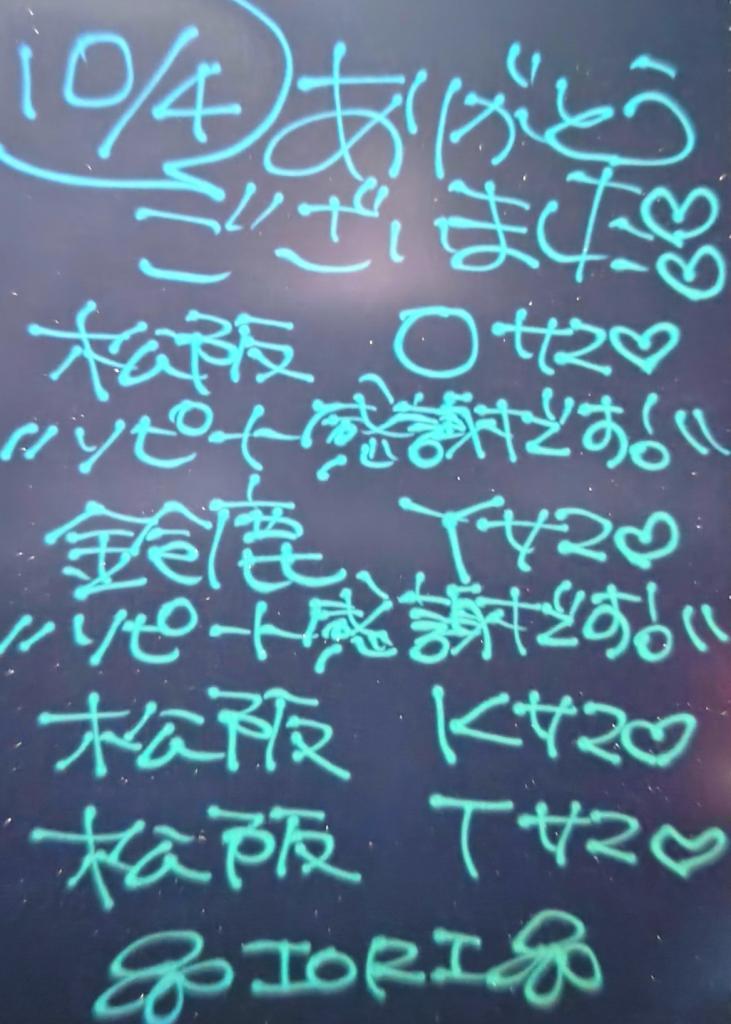 10/4 ありがとう
ございました♡♡
松阪 Oサマ♡
〃リピート感謝です!〃
鈴鹿 Yサマ♡
〃リピート感謝です!〃
松阪 Kサマ♡
松阪 Tサマ♡
IORI